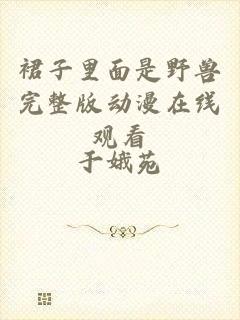 裙子里面是野兽
完整版动漫在线
观看
于娥苑